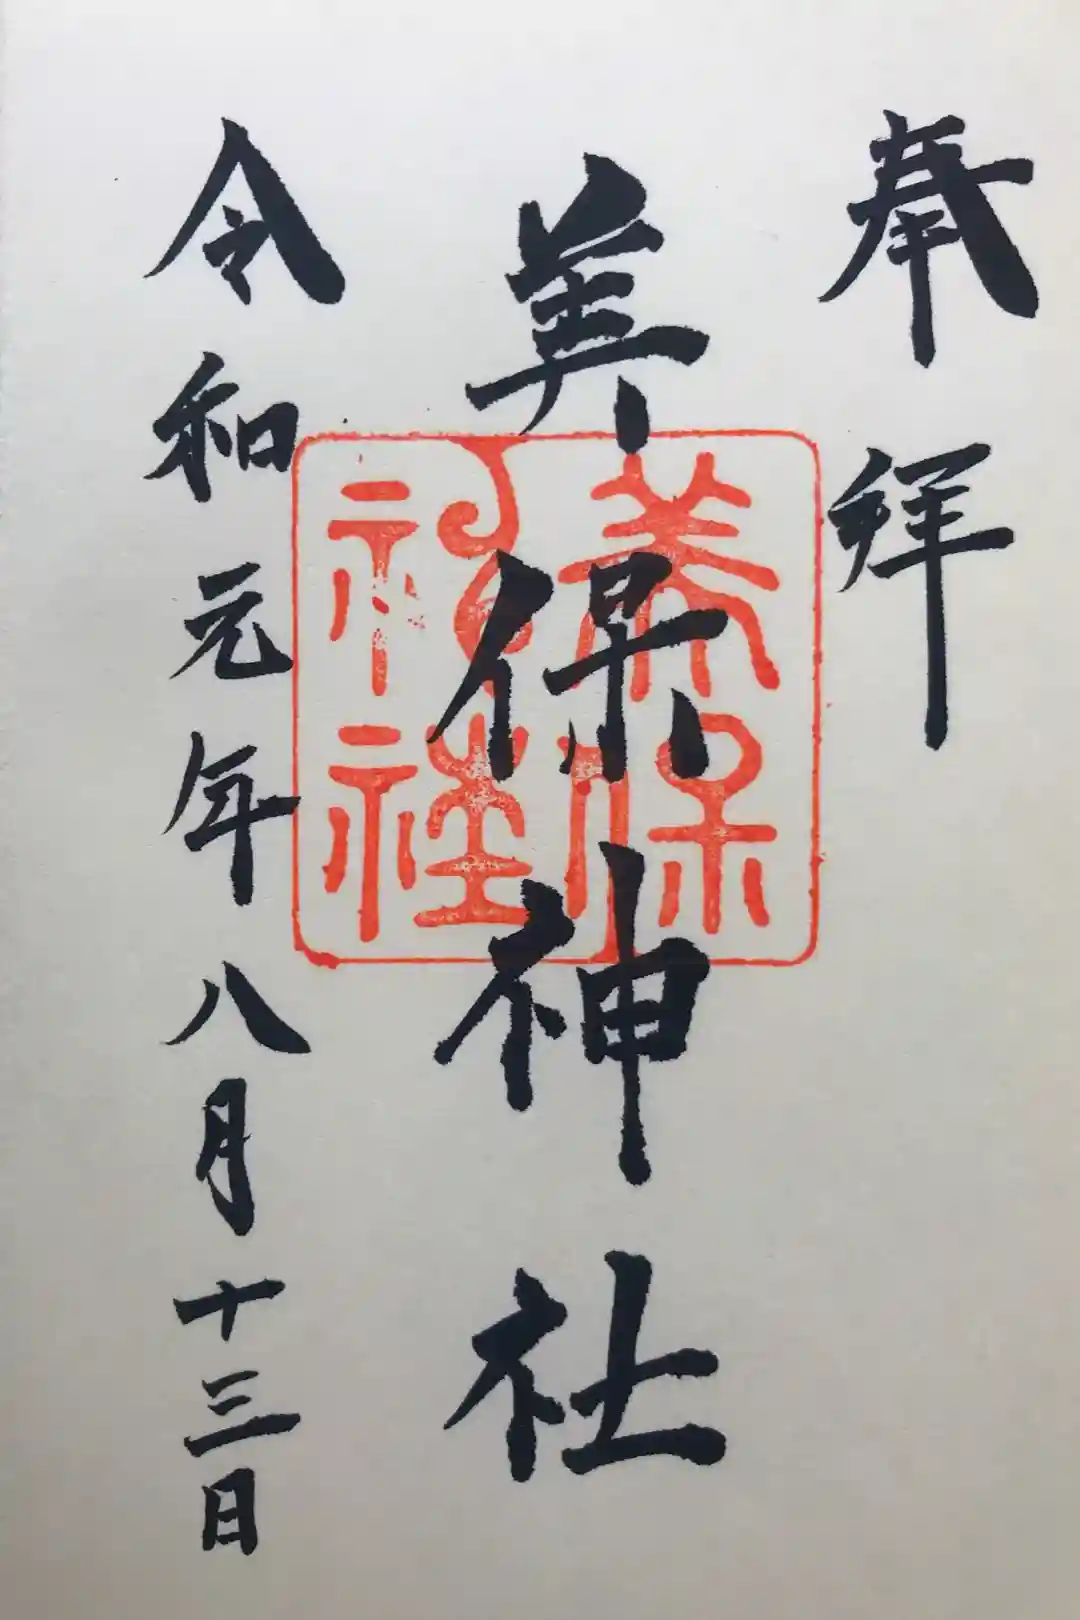 奉拜
美保神社
美保
神社
令和元年八月十三日